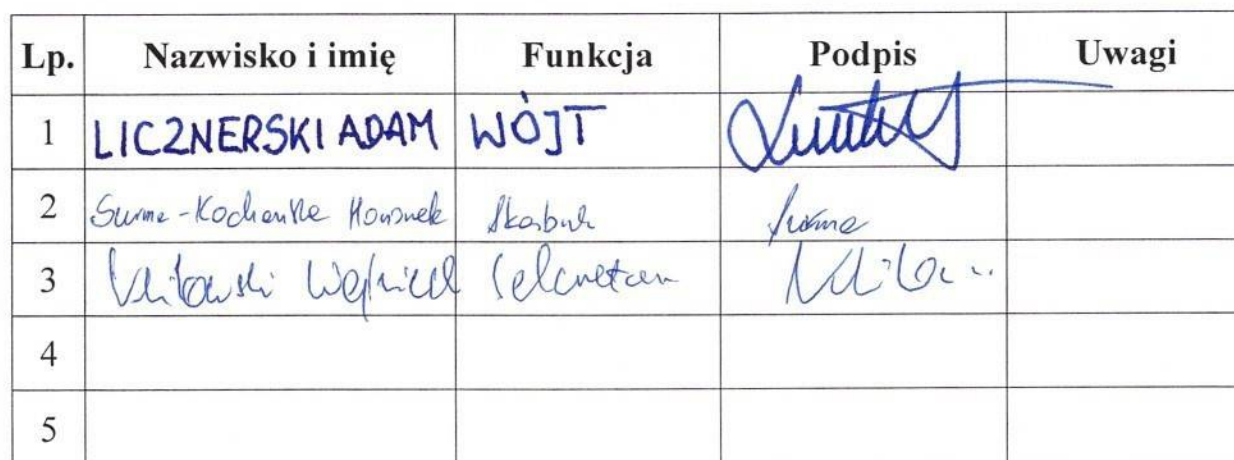 Lp. Nazwisko i imię Funkcja Podpis Uwagi
1 LICZNERSKI ADAM WÓJT
2 Surma-Kochanke Skarbnik Surma
3 Wojciech Sekretarz
4
5